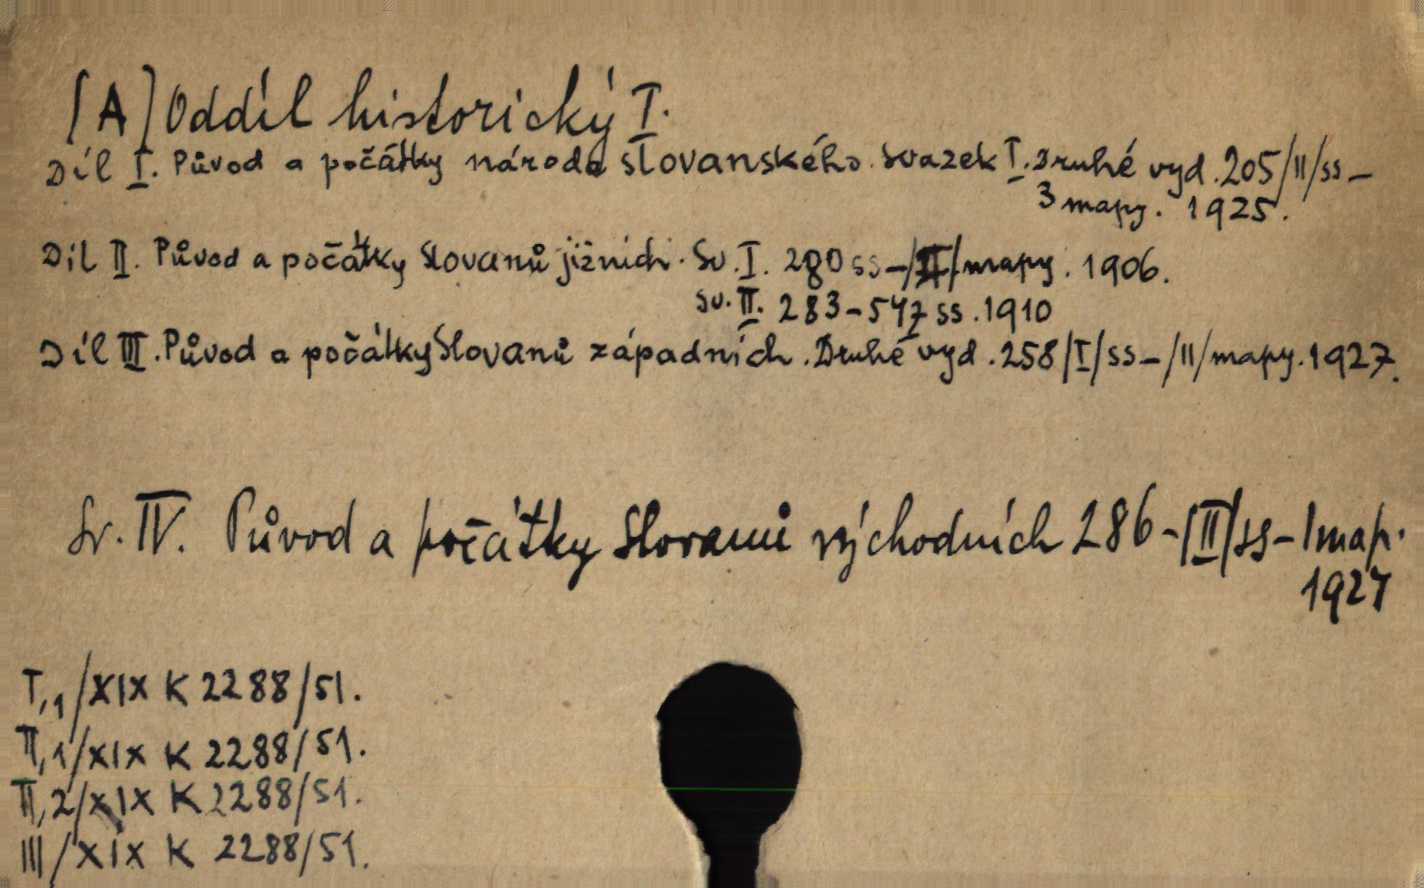 [A] Oddíl historický I.
Díl I. Původ a počátky národa slovanského. Svazek I. Druhé vyd. 205/II/ss –
3 mapy. 1925.
Díl II. Původ a počátky Slovanů jižních. Sv. I. 280 ss –/II/mapy. 1906.
Sv. II. 283–547 ss. 1910
Díl III. Původ a počátky Slovanů západních. Druhé vyd. 258/I/ss –/II/mapy. 1927.
Sv. IV. Původ a počátky Slovanů východních 286 – /II/ss – 1 map.
1927
I,1/XIX K 2288/51.
II,1/XIX K 2288/51.
II,2/XIX K 2288/51.
III/XIX K 2288/51.